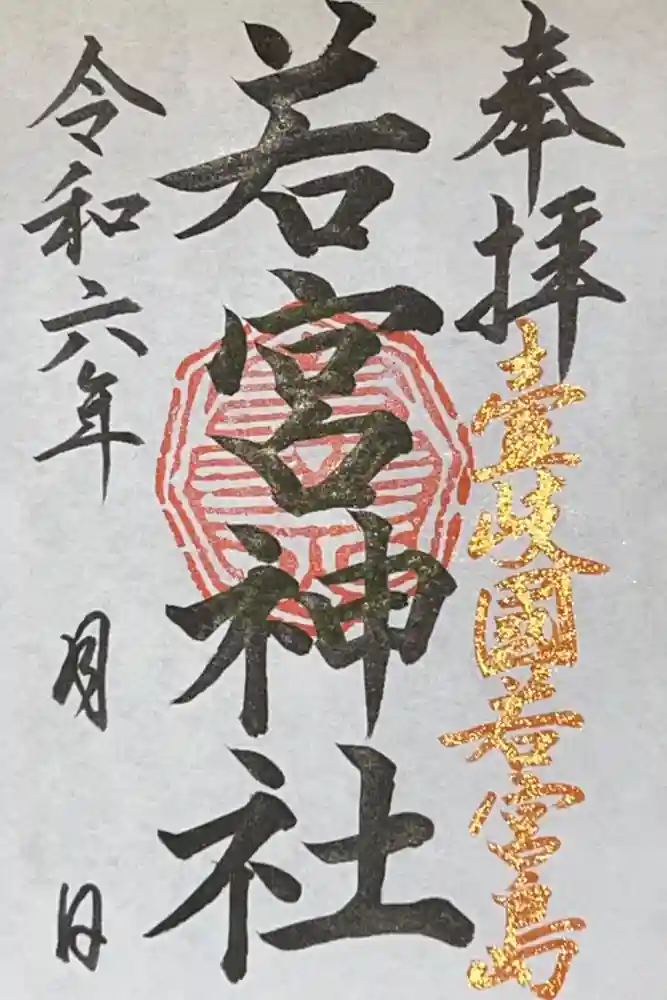 奉拝
壹岐國若宮島
若宮神社
令和六年
月
日